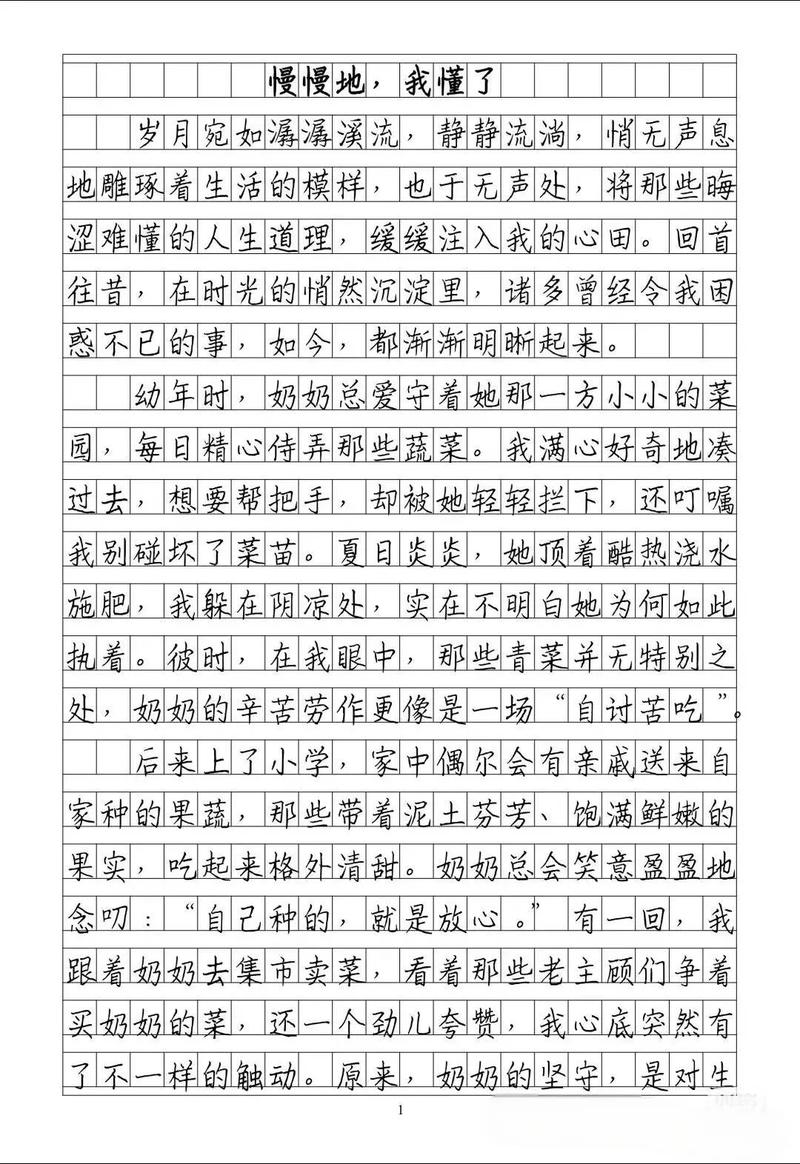 慢慢地，我懂了
岁月宛如潺潺溪流，静静流淌，悄无声息
地雕琢着生活的模样，也于无声处，将那些晦
涩难懂的人生道理，缓缓注入我的心田。回首
往昔，在时光的悄然沉淀里，诸多曾经令我困
惑不已的事，如今，都渐渐明晰起来。
幼年时，奶奶总爱守着她那一方小小的菜
园，每日精心侍弄那些蔬菜。我满心好奇地凑
过去，想要帮把手，却被她轻轻拦下，还叮嘱
我别碰坏了菜苗。夏日炎炎，她顶着酷热浇水
施肥，我躲在阴凉处，实在不明白她为何如此
执着。彼时，在我眼中，那些青菜并无特别之
处，奶奶的辛苦劳作更像是一场“自讨苦吃”。
后来上了小学，家中偶尔会有亲戚送来自
家种的果蔬，那些带着泥土芬芳、饱满鲜嫩的
果实，吃起来格外清甜。奶奶总会笑意盈盈地
念叨：“自己种的，就是放心。”有一回，我
跟着奶奶去集市卖菜，看着那些老主顾们争着
买奶奶的菜，还一个劲儿夸赞，我心底突然有
了不一样的触动。原来，奶奶的坚守，是对生
1